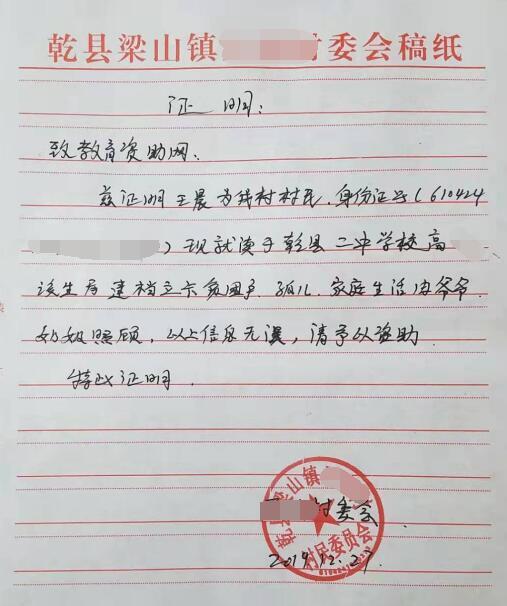 乾县梁山镇 村委会稿纸
证 明:
致教育资助网.
兹证明王晨为我村村民.身份证号(610424
)现就读于乾县二中学校高
该生属建档立卡贫困户.孤儿.家庭生活由爷爷.
奶奶照顾,以上信息无误,请予以资助.
特此证明.
乾县梁山镇
村委会.
村民委员会
2019.12.27.